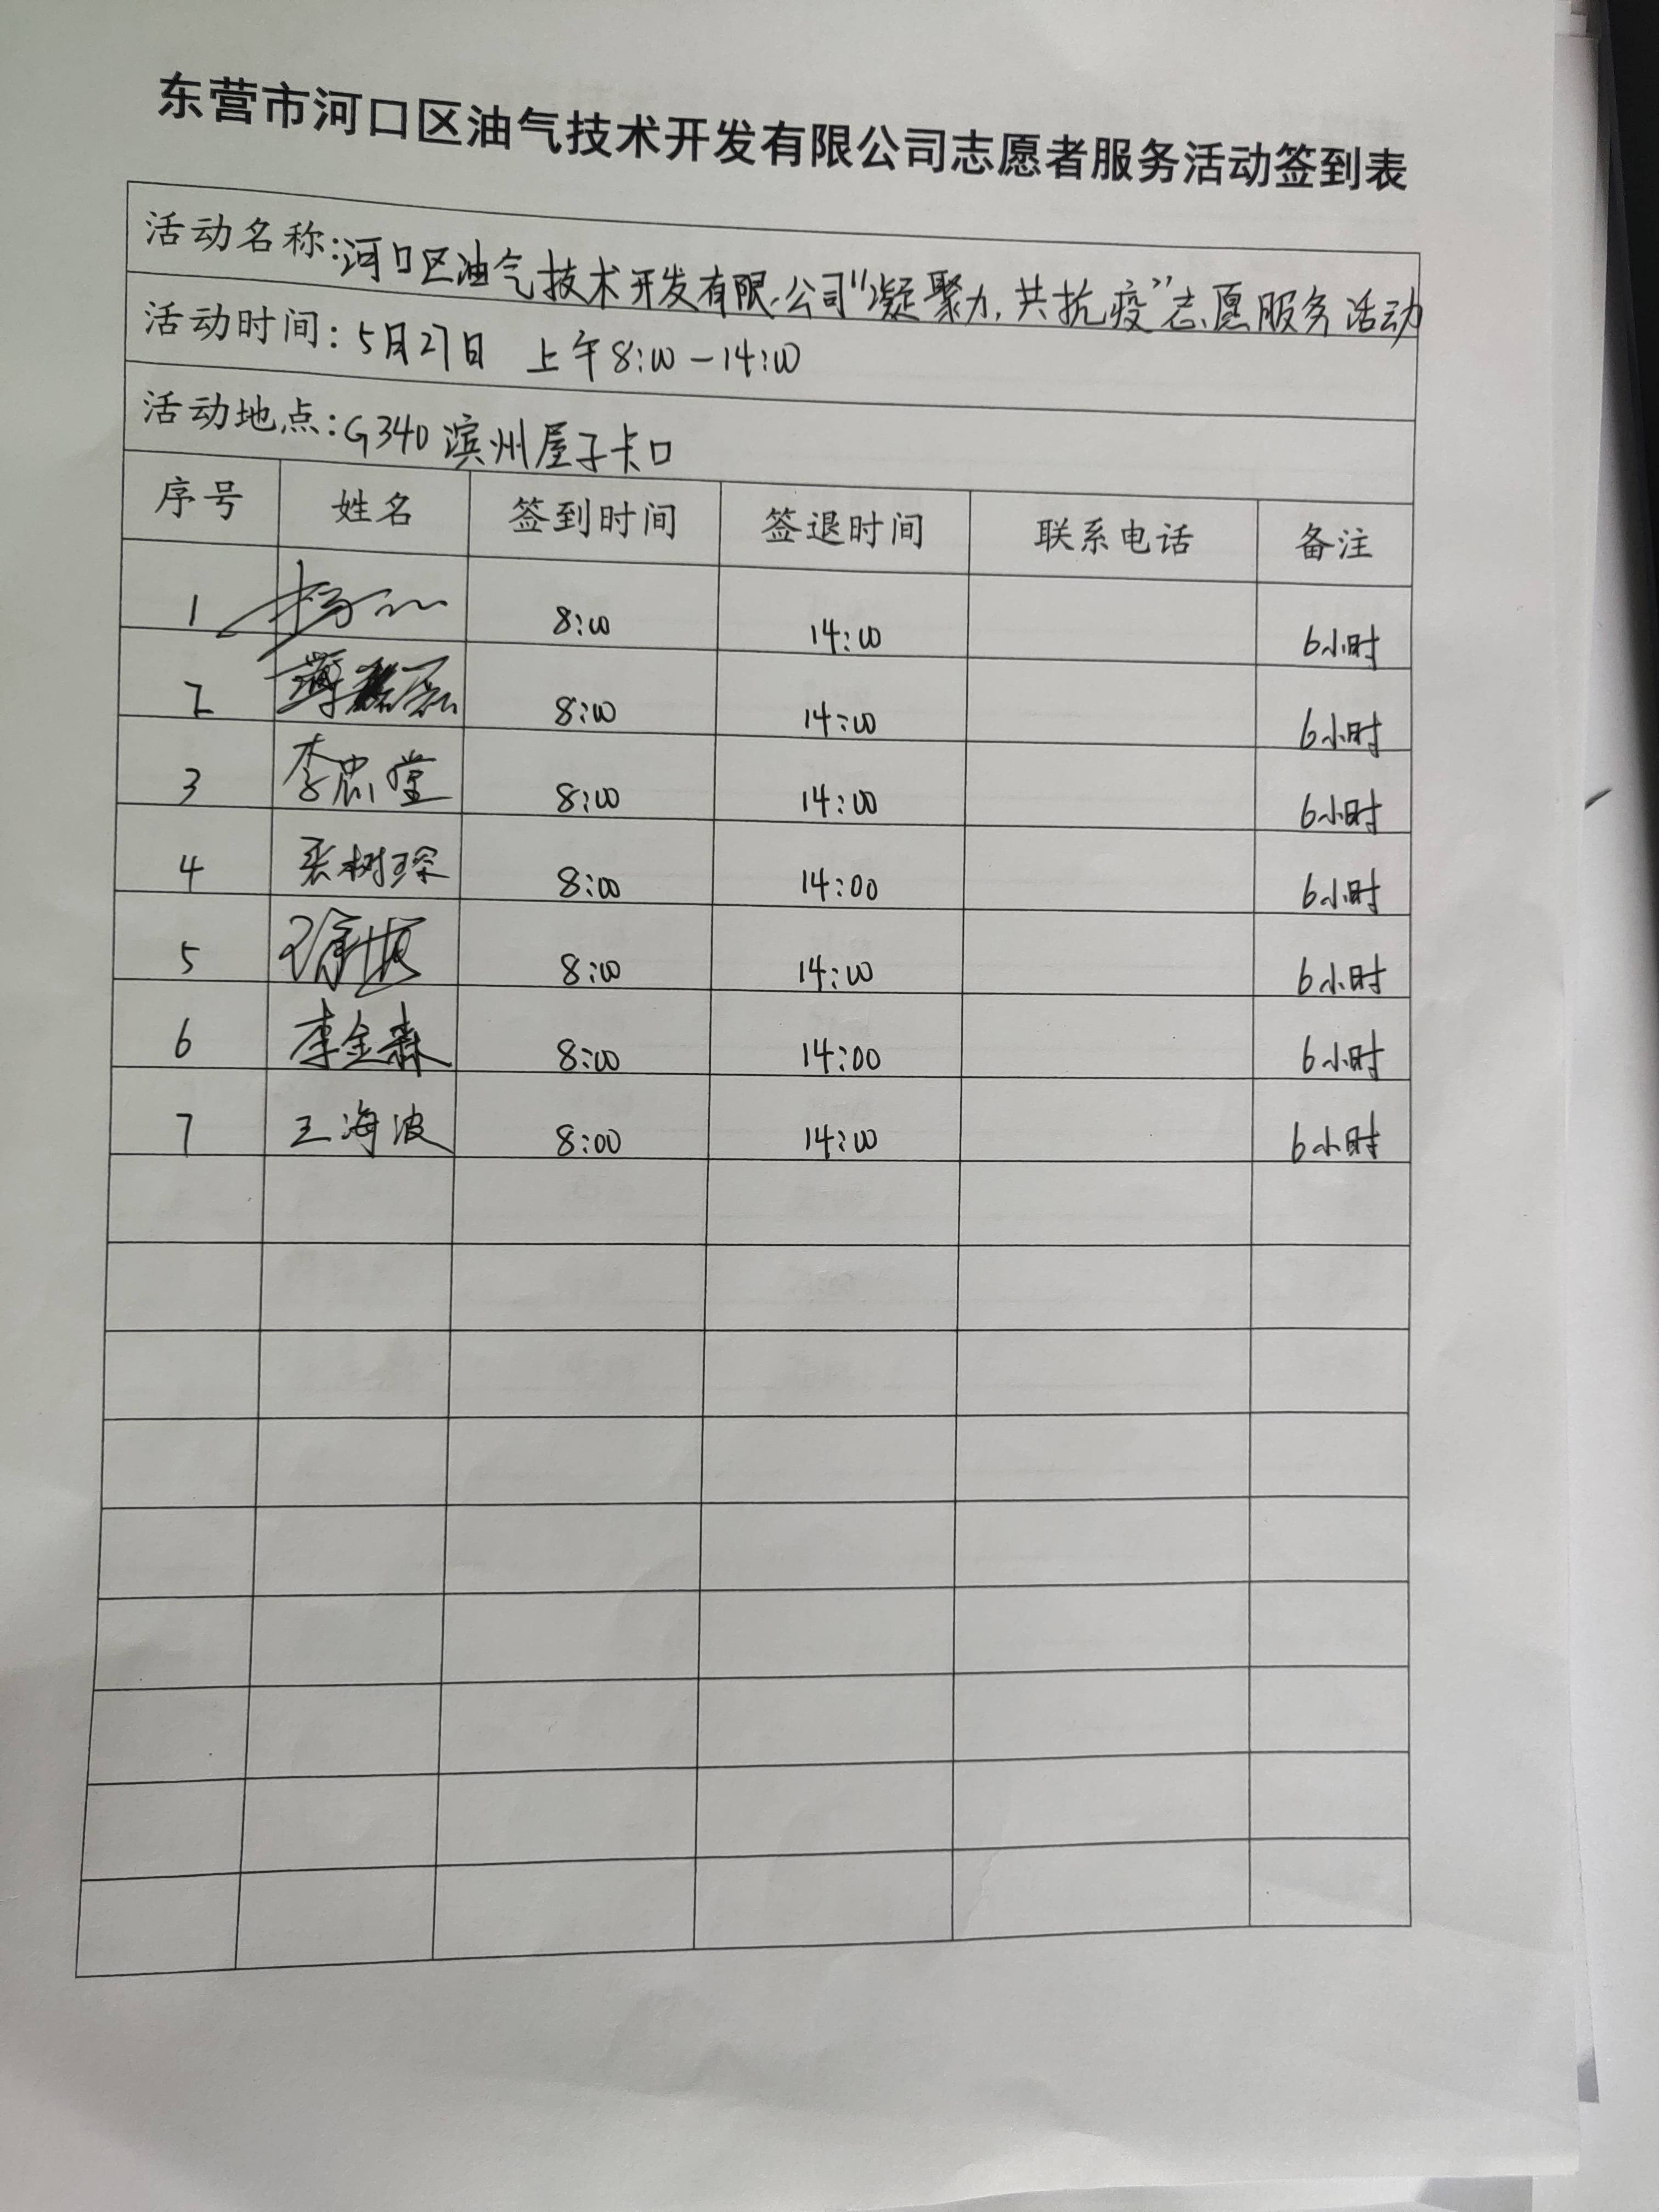 东营市河口区油气技术开发有限公司志愿者服务活动签到表
活动名称:河口区油气技术开发有限公司"凝聚力,共抗疫"志愿服务活动
活动时间: 5月27日 上午8:00-14:00
活动地点: G340滨州屋子卡口
序号 姓名 签到时间 签退时间 联系电话 备注
1 8:00 14:00 6小时
2 8:00 14:00 6小时
3 李忠堂 8:00 14:00 6小时
4 张树琛 8:00 14:00 6小时
5 8:00 14:00 6小时
6 李金森 8:00 14:00 6小时
7 王海波 8:00 14:00 6小时